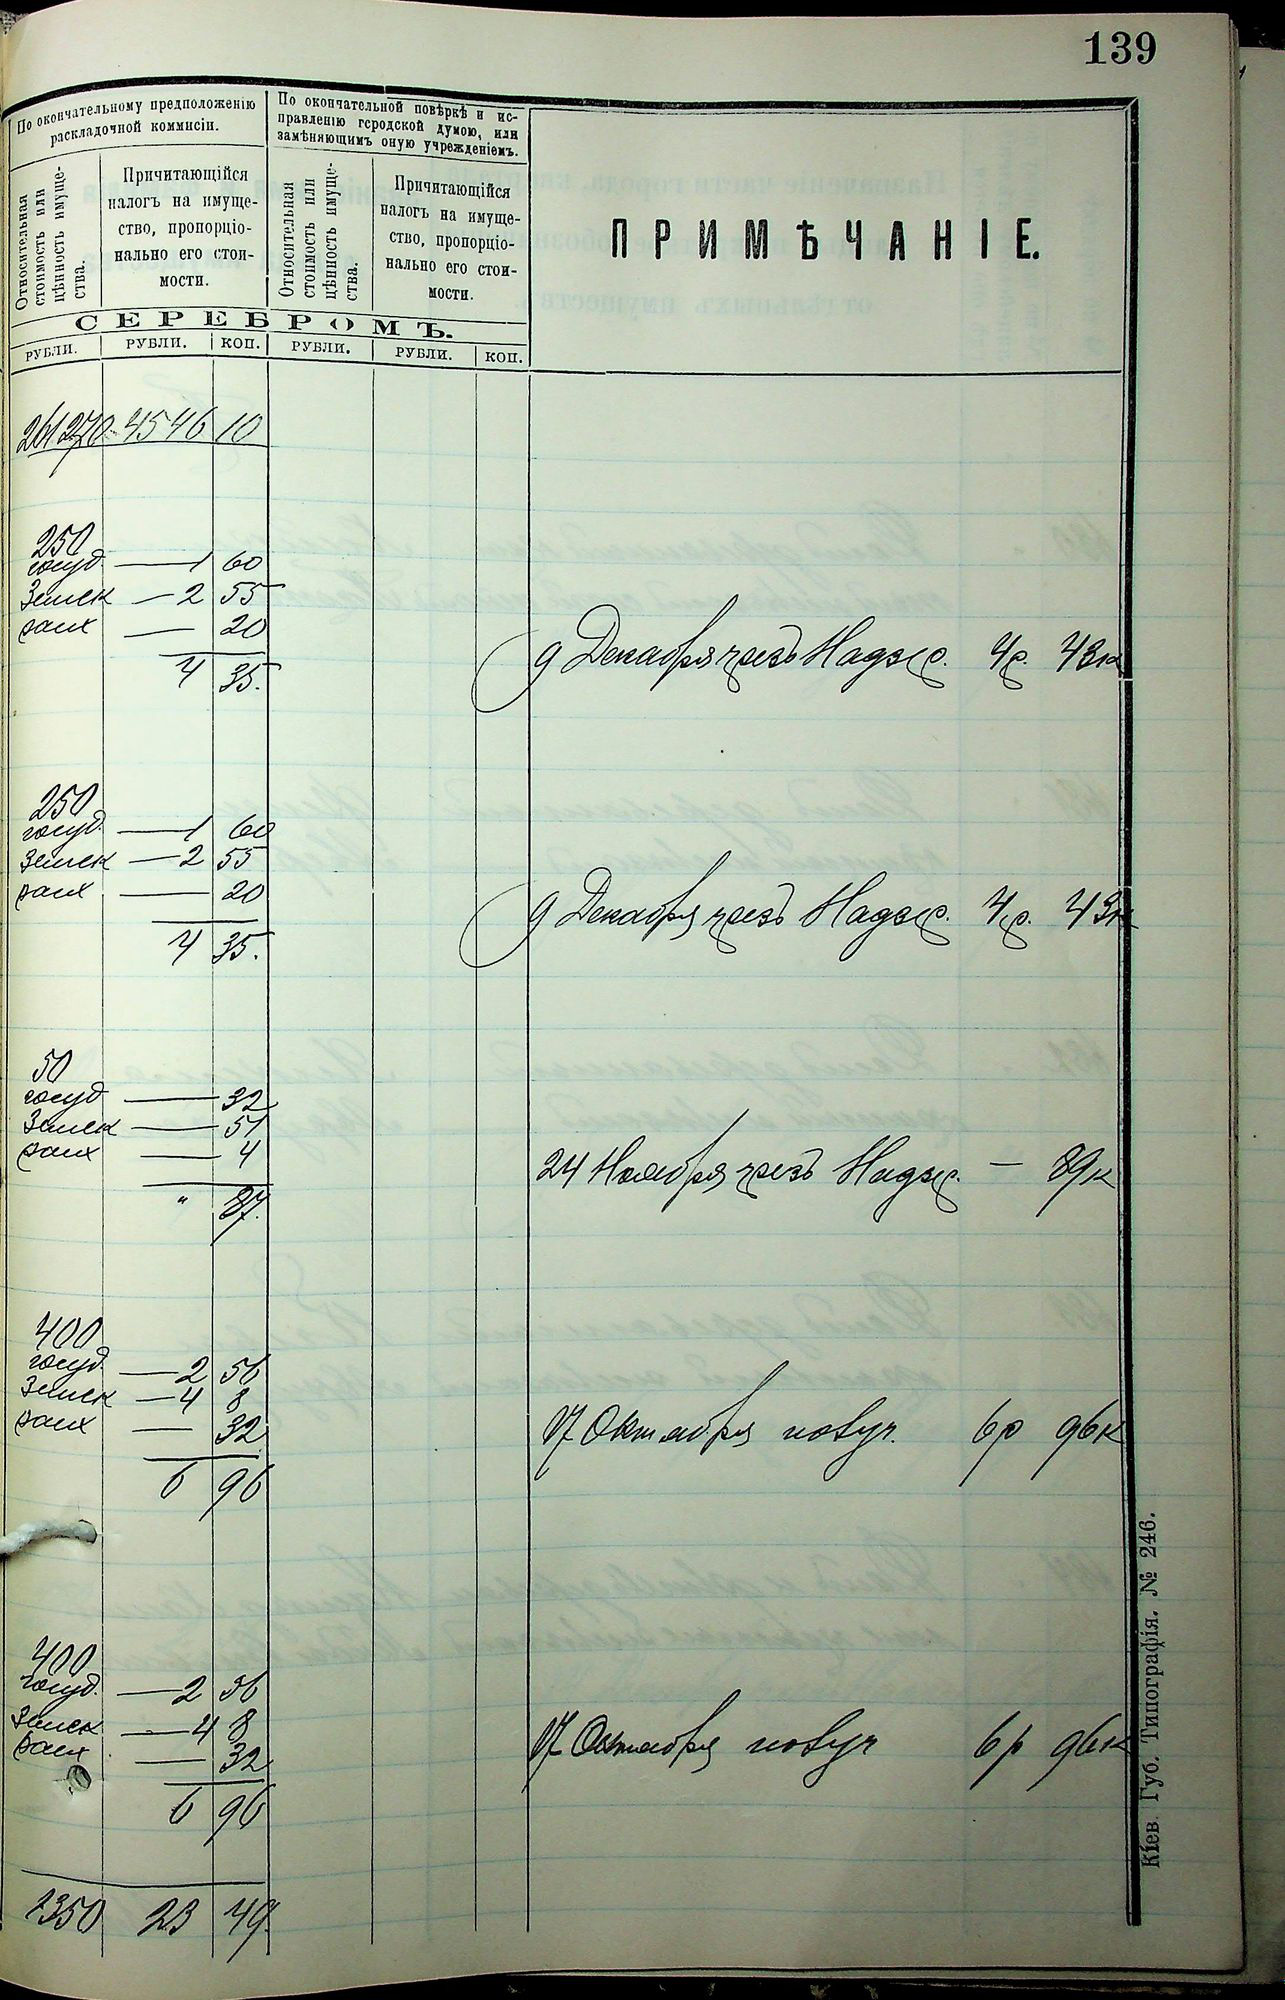 139
По окончательному предположенію
раскладочной коммисіи.
По окончательной повѣркѣ и ис-
правленію городской думою, или
замѣняющимъ оную учрежденіемъ.
Относительная
стоимость или
цѣнность имуще-
ства.
Причитающійся
налогъ на имуще-
ство, пропорціо-
нально его стои-
мости.
Относительная
стоимость или
цѣнность имуще-
ства.
Причитающійся
налогъ на имуще-
ство, пропорціо-
нально его стои-
мости.
ПРИМѢЧАНІЕ.
СЕРЕБРОМЪ.
РУБЛИ. РУБЛИ. КОП. РУБЛИ. РУБЛИ. КОП.
261270 4546 10
250
госуд. — 1 60
Земск — 2 55
— 20
4 35.
9 Декабря чрезъ Надзир. 4р. 43к
250
госуд. — 1 60
Земск — 2 55
— 20
4 35.
9 Декабря чрезъ Надзир. 4р. 43к
50
госуд — 32
Земск — 51
— 4
" 87.
24 Ноября чрезъ Надзир. — 89к
400
госуд. — 2 56
Земск — 4 8
— 32
6 96
17 Октября 6р 96к
400
госуд. — 2 56
Земск — 4 8
— 32
6 96
17 Октября 6р 96к
2350 23 49.
Кіев. Губ. Типографія. № 246.